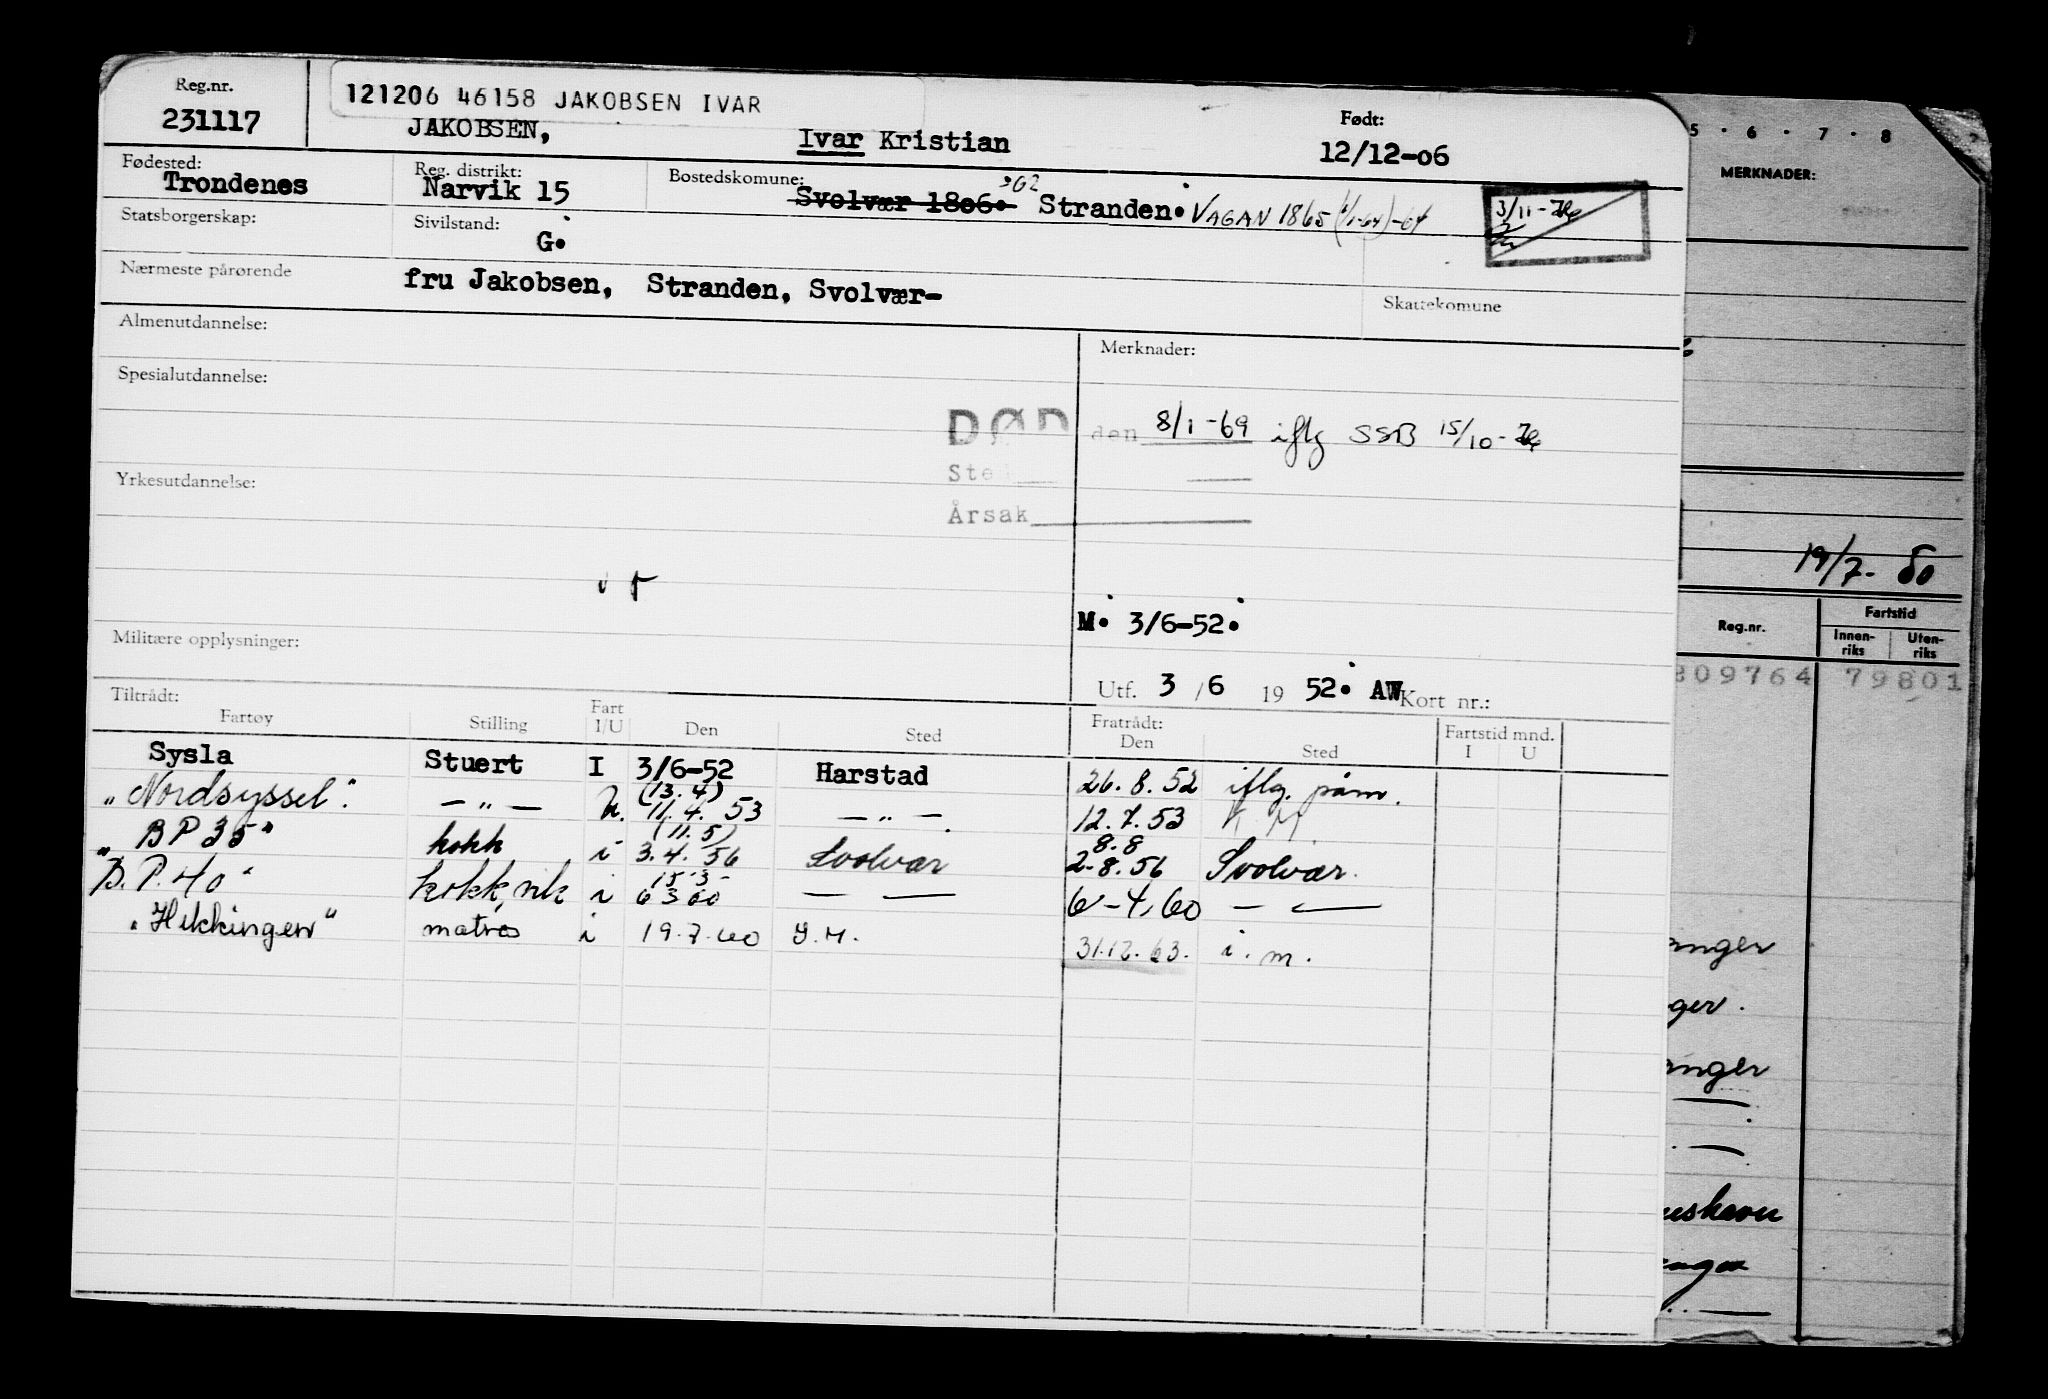 Reg.nr.
231117
121206 46158 JAKOBSEN IVAR
JAKOBSEN, Ivar Kristian
Født:
12/12-06
Fødested:
Trondenes
Reg. distrikt:
Narvik 15
Bostedskomune:
Svolvær 1806. Stranden. VAGAN 1865
3/11-
Statsborgerskap:
Sivilstand:
G.
Nærmeste pårørende
fru Jakobsen, Stranden, Svolvær-
Skattekomune
Almenutdannelse:
Merknader:
Spesialutdannelse:
DØD den 8/1-69 iflg SSB 15/10-
Sted
Årsak
Yrkesutdannelse:
M. 3/6-52.
Militære opplysninger:
Utf. 3/6 1952. AW Kort nr.:
Tiltrådt:
Fartøy Stilling Fart I/U Den Sted
Fratrådt:
Den Sted Fartstid mnd. I U
Sysla Stuert I 3/6-52 Harstad 26.8.52 iflg. påm.
(13.4)
"Nordsyssel". — " — 11.4.53 — " — 12.7.53
(11.5) 8.8
"BP 35" kokk i 3.4.56 Svolvær 2.8.56 Svolvær.
15 3
B.P.40" kokk, i 6 3 60 — — 6-4.60 — —
"Hekkingen" matros i 19.7.60 31.12.63. i.m.
5 · 6 · 7 · 8
MERKNADER:
19/7-50
Reg.nr. Fartstid
Innen-riks Uten-riks
809764 79801
anger
ger.
anger